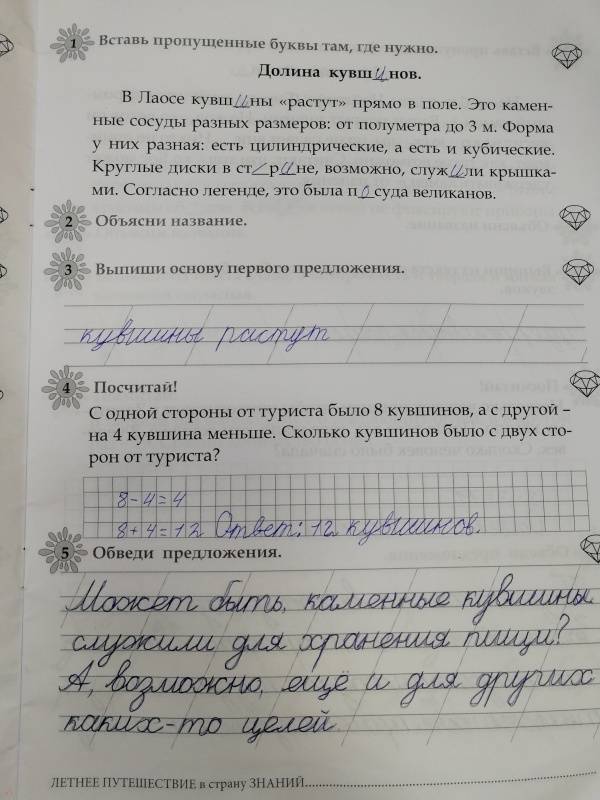 1 Вставь пропущенные буквы там, где нужно.
Долина кувшинов.
В Лаосе кувшины «растут» прямо в поле. Это камен-
ные сосуды разных размеров: от полуметра до 3 м. Форма
у них разная: есть цилиндрические, а есть и кубические.
Круглые диски в ст/рине, возможно, служили крышка-
ми. Согласно легенде, это была посуда великанов.
2 Объясни название.
3 Выпиши основу первого предложения.
кувшины растут
4 Посчитай!
С одной стороны от туриста было 8 кувшинов, а с другой –
на 4 кувшина меньше. Сколько кувшинов было с двух сто-
рон от туриста?
8-4=4
8+4=12 Ответ: 12 кувшинов.
5 Обведи предложения.
Может быть, каменные кувшины
служили для хранения пищи?
А, возможно, ещё и для других
каких-то целей.
ЛЕТНЕЕ ПУТЕШЕСТВИЕ в страну ЗНАНИЙ